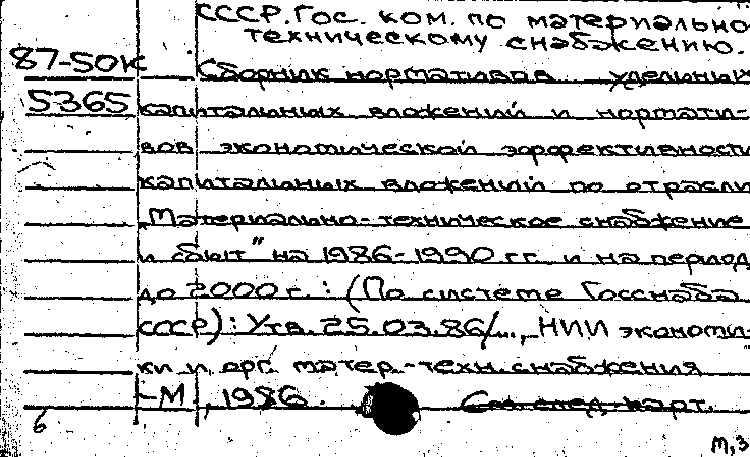 СССР. Гос. ком. по материально-
техническому снабжению.
87-50к Сборник нормативов удельных
5365 капитальных вложений и нормати-
вов экономической эффективности
капитальных вложений по отрасли
„Материально-техническое снабжение
и сбыт" на 1986-1990 гг. и на период
до 2000 г.: (По системе Госснаба
СССР): Утв. 25.03.86/..., НИИ экономи-
ки и орг. матер.-техн. снабжения
-М., 1986. См. след. карт.
б
м,3